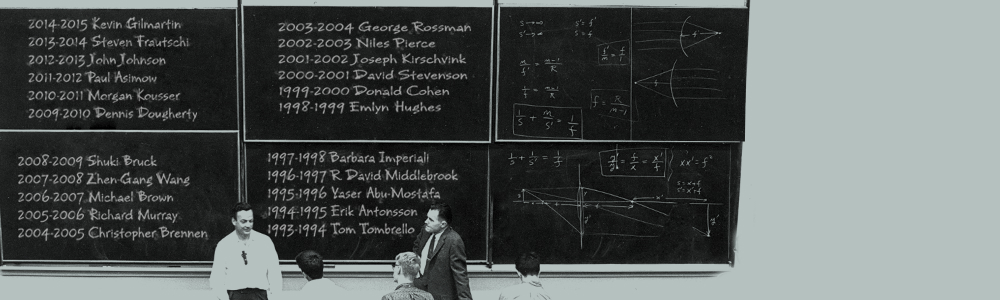 2014-2015 Kevin Gilmartin
2013-2014 Steven Frautschi
2012-2013 John Johnson
2011-2012 Paul Asimow
2010-2011 Morgan Kousser
2009-2010 Dennis Dougherty
2008-2009 Shuki Bruck
2007-2008 Zhen-Gang Wang
2006-2007 Michael Brown
2005-2006 Richard Murray
2004-2005 Christopher Brennen
2003-2004 George Rossman
2002-2003 Niles Pierce
2001-2002 Joseph Kirschvink
2000-2001 David Stevenson
1999-2000 Donald Cohen
1998-1999 Emlyn Hughes
1997-1998 Barbara Imperiali
1996-1997 R David Middlebrook
1995-1996 Yaser Abu-Mostafa
1994-1995 Erik Antonsson
1993-1994 Tom Tombrello
1/s + m/s' = 1/f
1/s + 1/s' = 1/f
xx' = f²